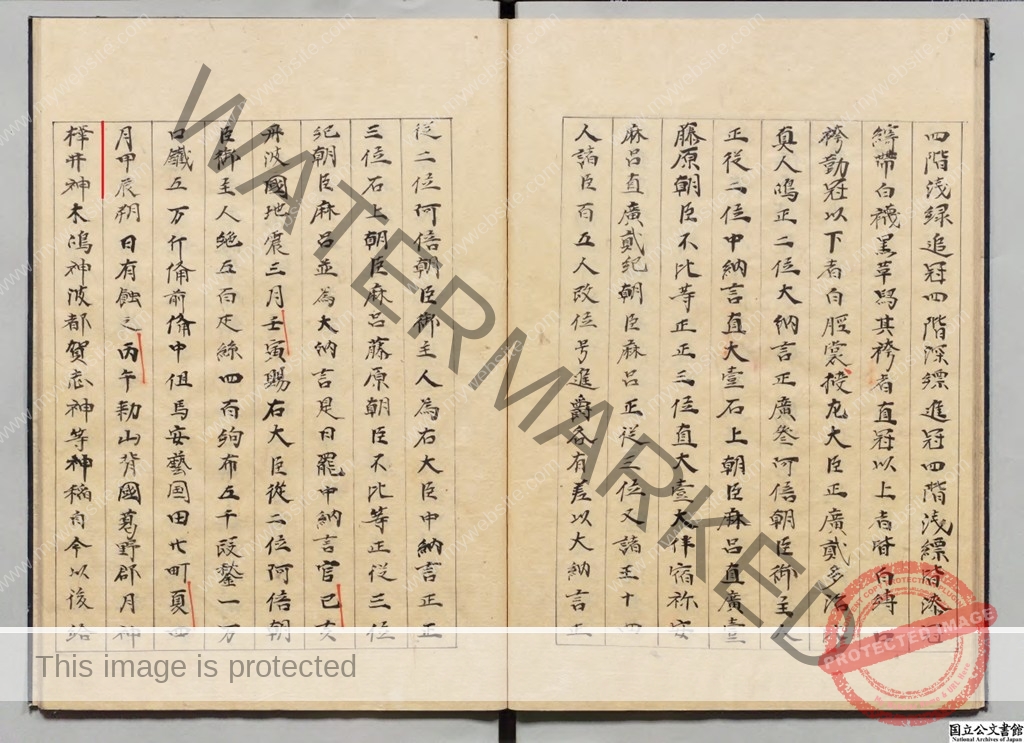 四階浅緑追冠四階深縹進冠四階浅縹皆漆冠
綺帯白襪黒革舄其袴者直冠以上者皆白縛口
袴勤冠以下者白脛裳授左大臣正廣貳多治
真人嶋正二位大納言正廣叄阿倍朝臣御主人
正従二位中納言直大壹石上朝臣麻呂直廣壹
藤原朝臣不比等正正三位直大壹大伴宿祢安
麻呂直廣貳紀朝臣麻呂正従三位又諸王十四
人諸臣百五人改位号進爵各有差以大納言正
従二位阿倍朝臣御主人為右大臣中納言正正
三位石上朝臣麻呂藤原朝臣不比等正従三位
紀朝臣麻呂並為大納言是日罷中納言官己亥
丹波國地震三月壬寅賜右大臣従二位阿倍朝
臣御主人絶五百疋絲四百絇布五千段鍬一万
口鐵五万斤備前備中但馬安藝国田廿町夏四
月甲辰朔日有蝕之丙午勅山背國葛野郡月神
樺井神木嶋神波都賀志神等神稲自今以後給
WATERMARKED
PROTECTED IMAGE
This image is protected
国立公文書館
National Archives of Japan
www.mywebsite.com